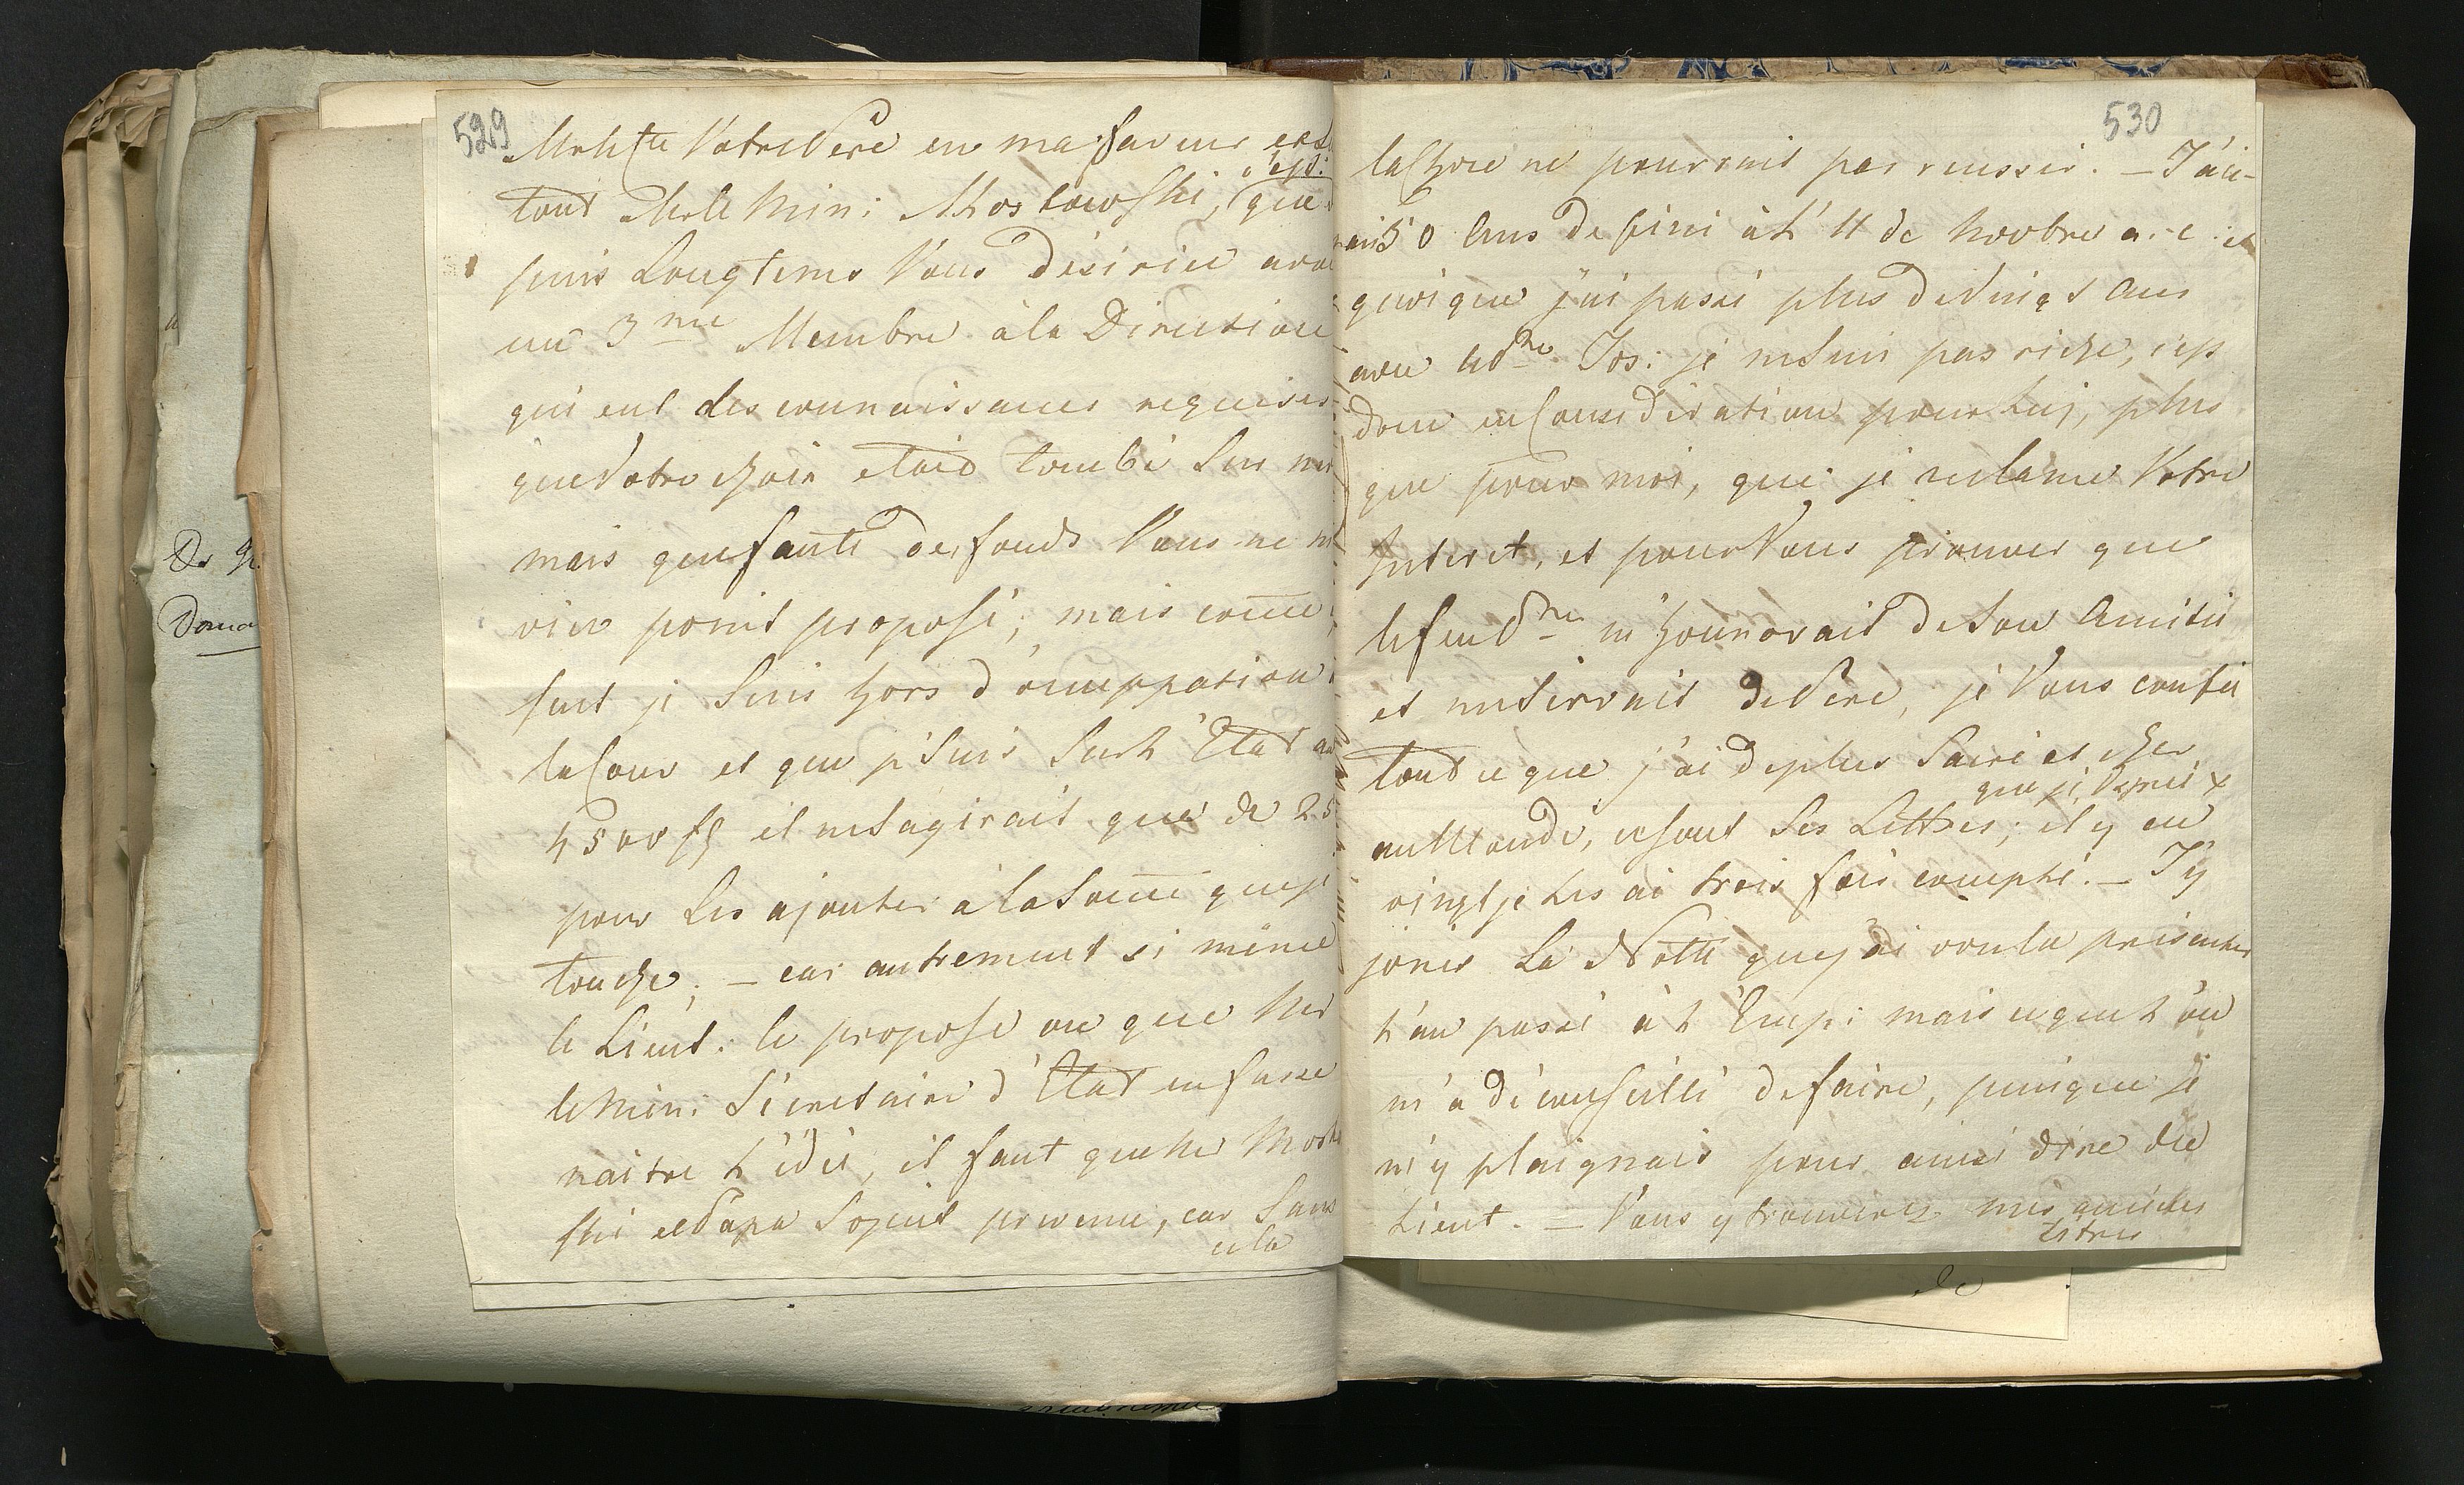 529
Mr le Cte Votre Père en ma faveur est
c'est:
tout Mr le Min: Mostowski, que
puis Longtems Vous désiriez avoi
un 3me Membre à la Direction
qui eut des connaissances requises
que Votre choix etaid tombé Sur m
mais que faute des fonds Vous ne m
viez point proposé; mais come
sent je Suis hors d'occuppation
la Cour et que je Suis Sur L'Etat au
4500 fl il ne S'agirait que de 25
pour Les ajouter à la Some que je
touche; – car autrement si même
le Lieut: le propose ou que Mr
le Min: Sécretaire d'Etat en fasse
naitre L'idée, il faut que Mr Mosto
ski et Papa Soyent prevenu, car Sans
cela
530
la Chose ne pourrait pas reussir. – J'ai
50 Ans de fini à L'11 de Novbre a: c: et
quoique j'ai passé plus de Vingt Ans
avec le Pce Jos: je ne Suis pas riche, c'est
donc en Consideration pour Lui, plus
que pour moi, que je reclame Votre
Interet, et pour Vous prouver que
le feu Pce m'honnorait de Son Amitié
et me Servait de Père, je Vous confie
tout ce que j'ai de plus Sacré et cher
au Monde, ce sont Ses Lettres; il y en
vingt je Les ai trois fois compté. – J'y
joins La Notte que j'ai voulu présenter
L'an passé à L'Emp: mais ce que L'on
m'a déconseillé de faire, puisque je
m'y plaignais pour ainsi dire du
Lieut. – Vous y trouverez mes
titres
Dr